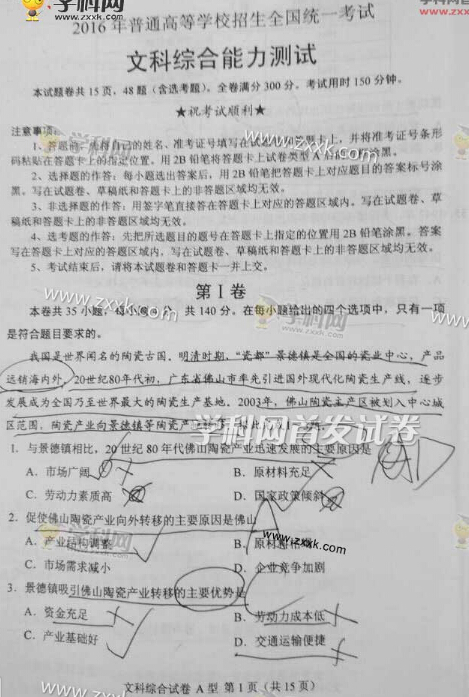 学科网
www.zxxk.com
2016年普通高等学校招生全国统一考试
文科综合能力测试
本试题卷共15页，48题（含选考题）。全卷满分300分。考试用时150分钟。
★祝考试顺利★
注意事项：
1、答题前，先将自己的姓名、准考证号填写在试题卷和答题卡上，并将准考证号条形
码粘贴在答题卡上的指定位置。用2B铅笔将答题卡上试卷类型A后的方框涂黑。
2、选择题的作答：每小题选出答案后，用2B铅笔把答题卡上对应题目的答案标号涂
黑。写在试题卷、草稿纸和答题卡上的非答题区域均无效。
3、非选择题的作答：用签字笔直接答在答题卡上对应的答题区域内。写在试题卷、草
稿纸和答题卡上的非答题区域均无效。
4、选考题的作答：先把所选题目的题号在答题卡上指定的位置用2B铅笔涂黑。答案
写在答题卡上对应的答题区域内，写在试题卷、草稿纸和答题卡上的非答题区域均无效。
5、考试结束后，请将本试题卷和答题卡一并上交。
第Ⅰ卷
本卷共35小题，每小题 共140分。在每小题给出的四个选项中，只有一项
是符合题目要求的。
我国是世界闻名的陶瓷古国，明清时期，“瓷都”景德镇是全国的瓷业中心，产品
远销海内外。20世纪80年代初，广东省佛山市率先引进国外现代化陶瓷生产线，逐步
发展成为全国乃至世界最大的陶瓷生产基地。2003年，佛山陶瓷主产区被划入中心城
区范围，陶瓷产业向景德镇等陶瓷产
学科网首发试卷
1. 与景德镇相比，20世纪80年代佛山陶瓷产业迅速发展的主要原因是
A．市场广阔
B．原材料充足
C．劳动力素质高
D．国家政策倾斜
2. 促使佛山陶瓷产业向外转移的主要原因是佛山
A．产业结构调整
B．原材料
C．市场需求减小
D．企业竞争加剧
3. 景德镇吸引佛山陶瓷产业转移的主要优势是
A．资金充足
B．劳动力成本低
C．产业基础好
D．交通运输便捷
文科综合试卷 A型 第1页（共15页）